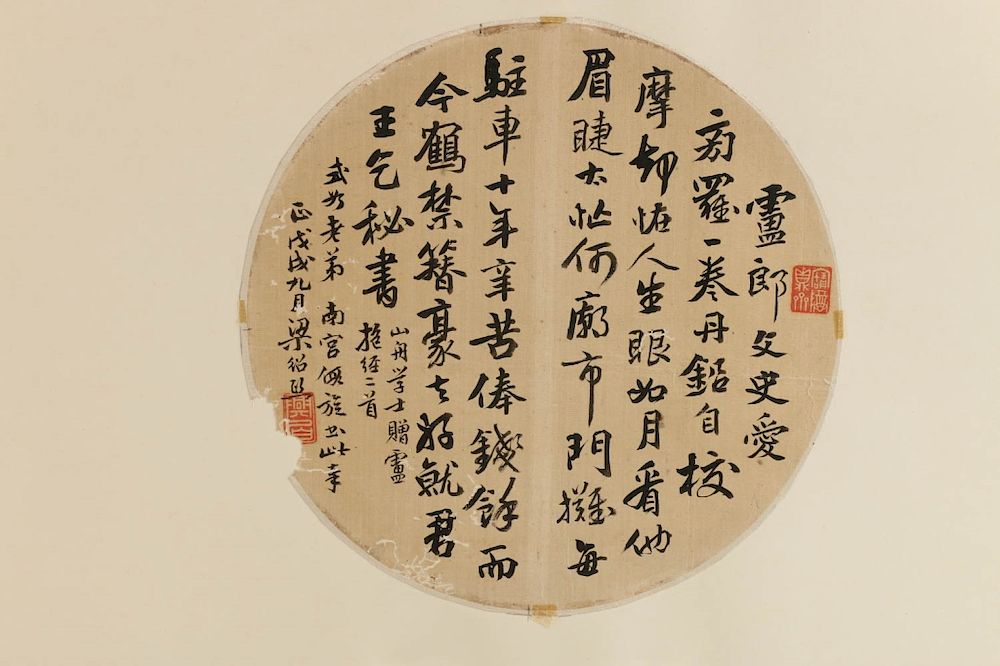 盧郎文史愛
旁羅一卷丹鉛自校
摩却怪人生眼如月看他
眉睫太忙何廟市門攤每
駐車十年辛苦俸錢餘而
今鶴禁簪豪去好就君
王乞秘書
山舟学士贈盧
抱經二首
式如老弟南宮假旋書此幸
正戊戌九月梁紹